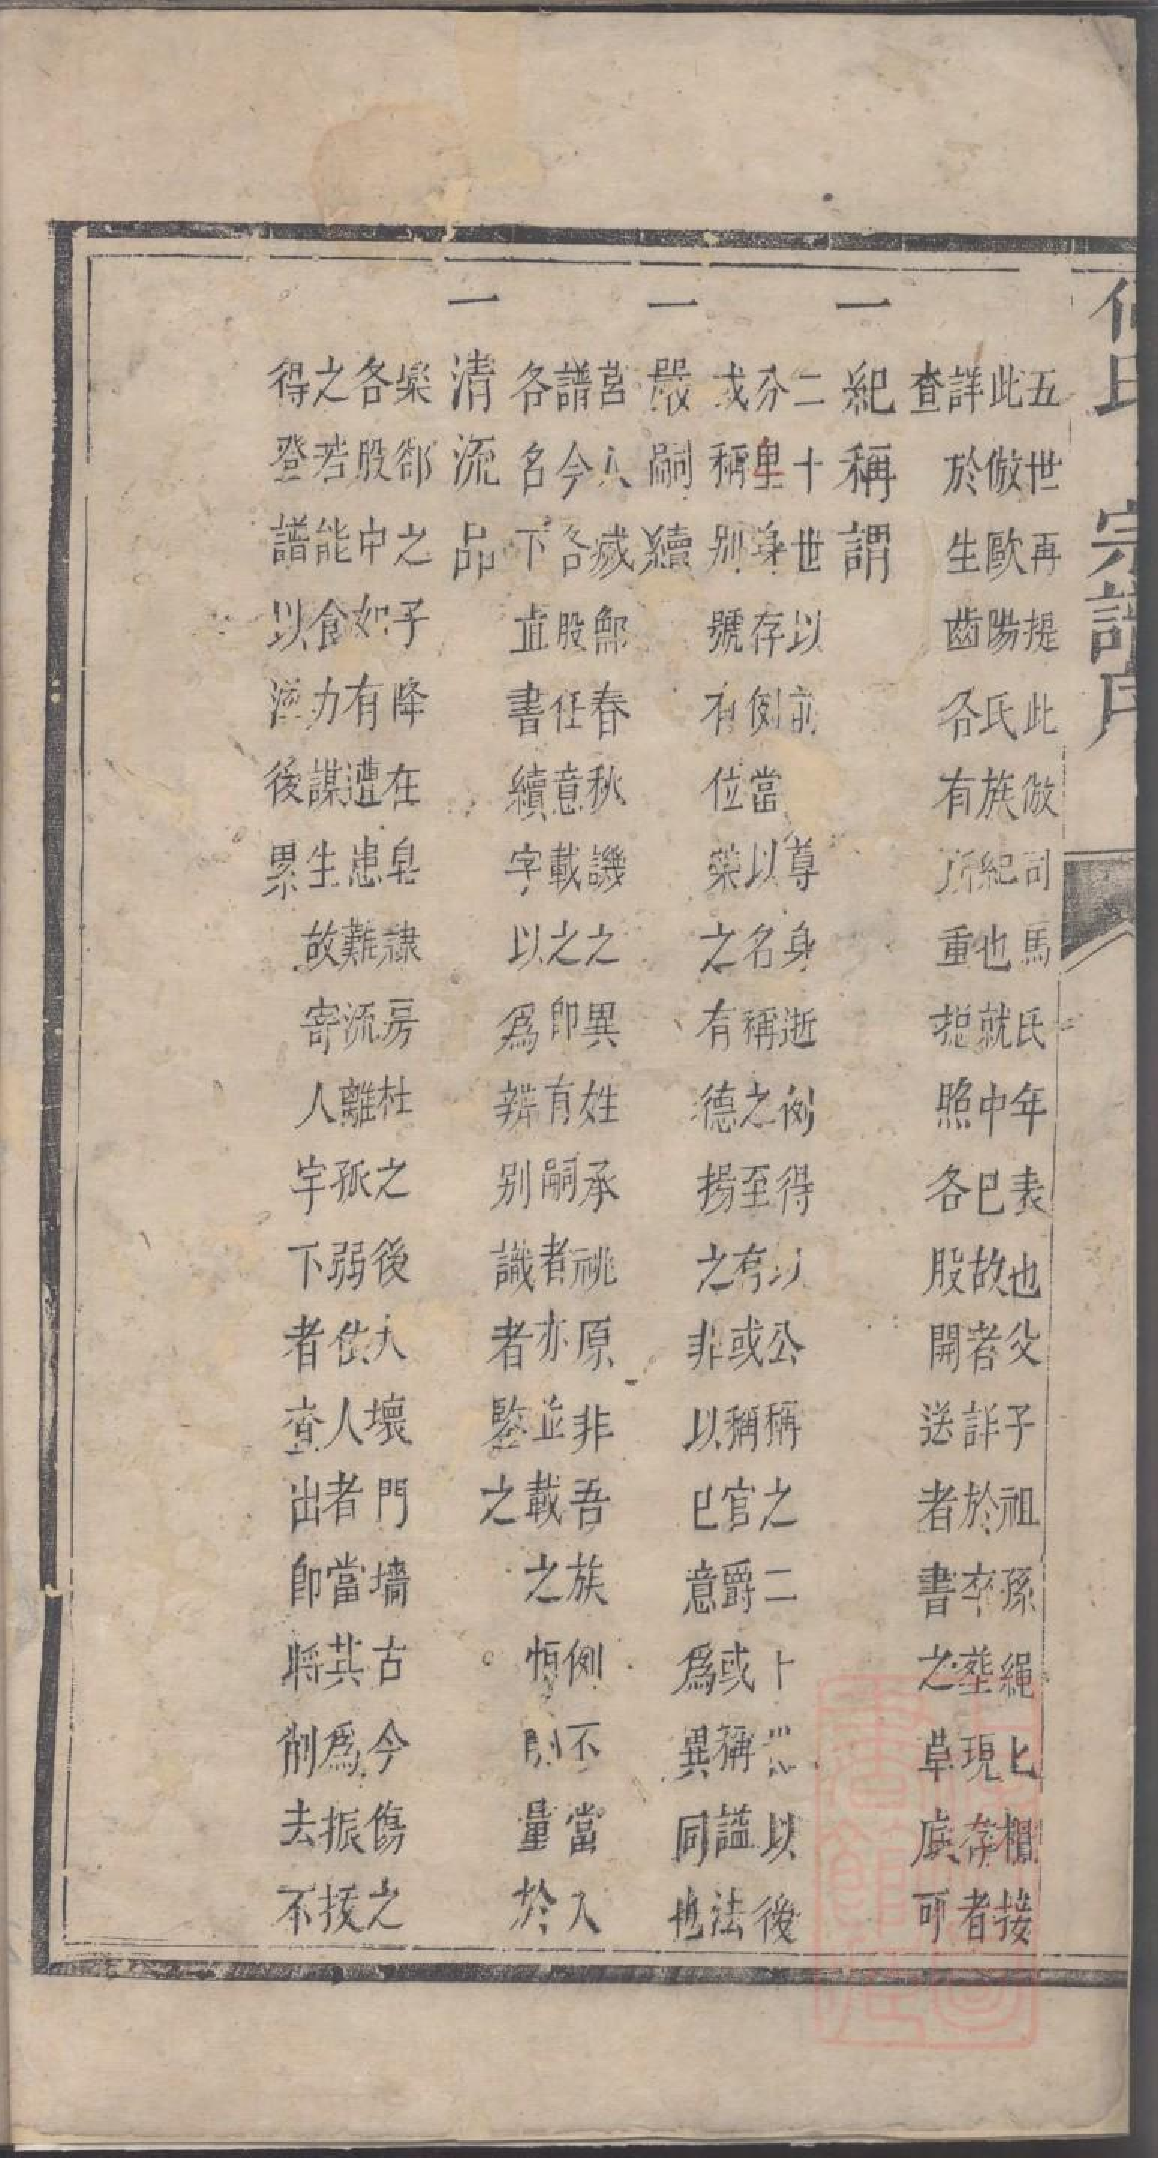 何氏宗譜序
五世再提此倣司馬氏年表也父子祖孫繩上櫃接
此倣歐陽氏族紀也就中巳故者詳於卒塟現存者
詳於生齒各有所重揔照各股開送者書之草底可
查
一紀稱謂
二十世以前尊身逝例得以公稱之二十世以後
分卑身存例當以名稱之至有或稱官爵或稱謚法
或稱別號有位榮之有德揚之非以巳意爲異同也
一嚴嗣續
莒人滅鄫春秋譏之異姓承祧原非吾族例不當入
譜今各股任意載之即有嗣者亦並載之恒刖量於
各名下直書續字以爲辨別識者鑒之
一清流品
欒郤之子降在皂隸房杜之後大壞門墻古今傷之
各股中如有遭患難流離孤弱依人者當其爲振㧞之
之若能食力謀生故寄人宇下者查出即將削去不
得登譜以滋後累